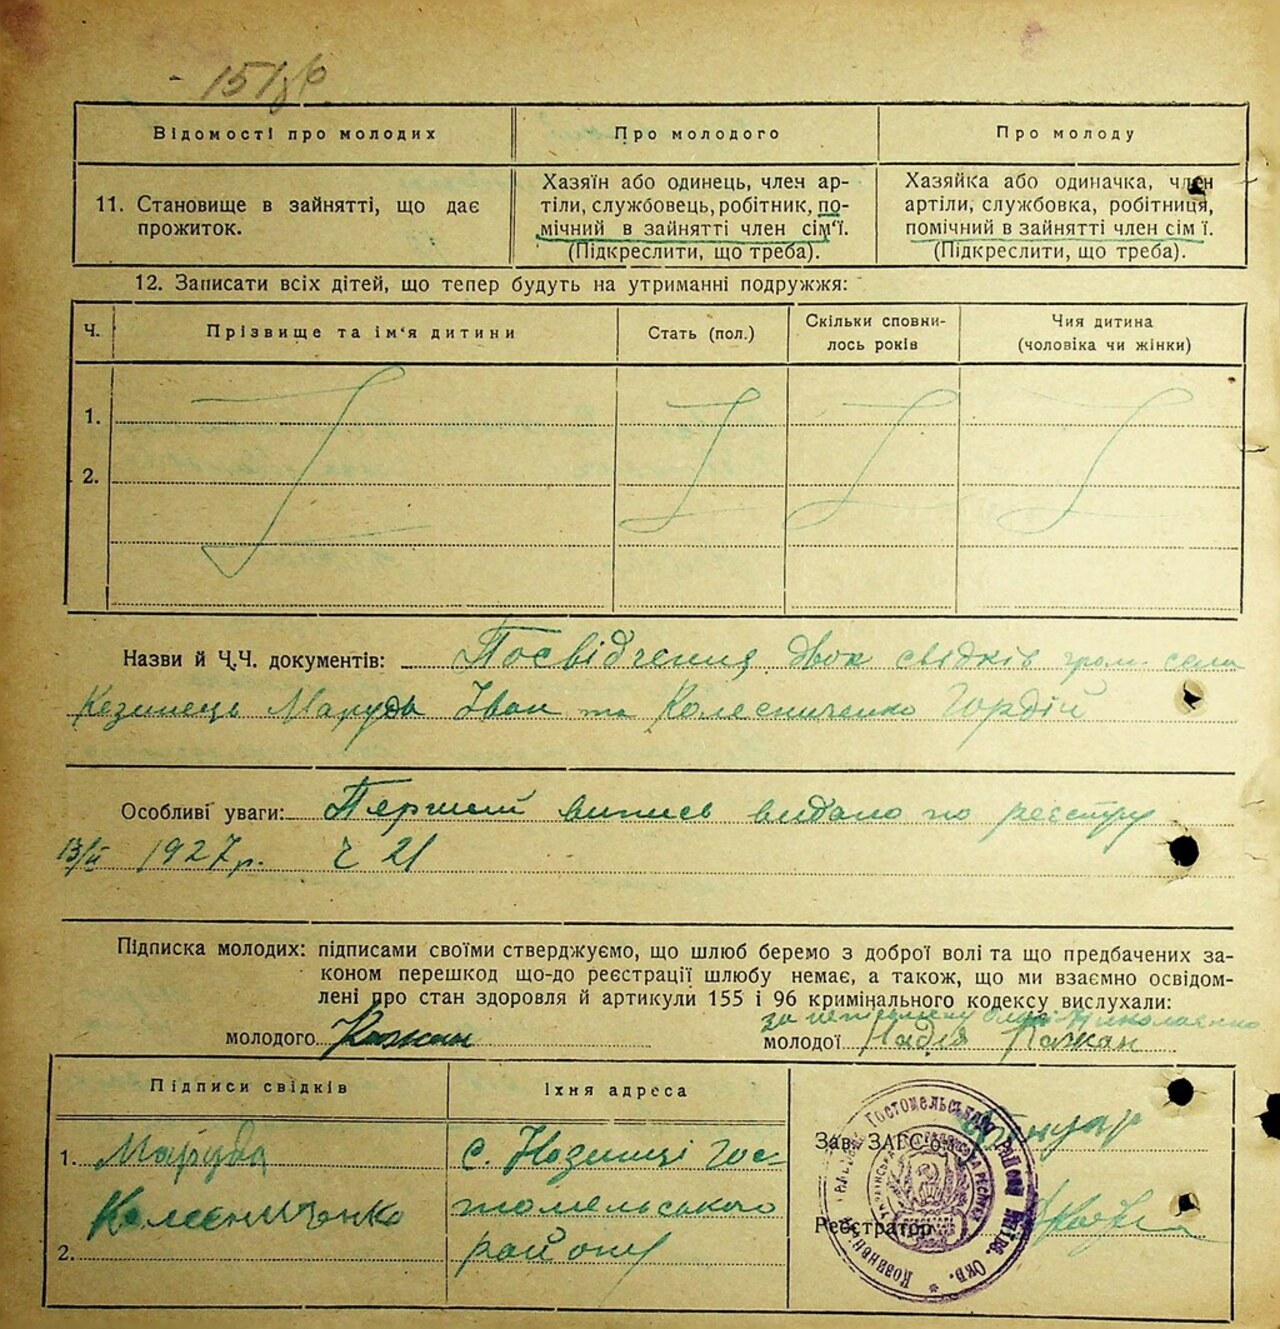 Відомості про молодих
Про молодого
Про молоду
11. Становище в зайнятті, що дає
прожиток.
Хазяїн або одинець, член ар-
тіли, службовець, робітник, по-
мічний в зайнятті член сім'ї.
(Підкреслити, що треба).
Хазяйка або одиначка, член
артіли, службовка, робітниця,
помічний в зайнятті член сім ї.
(Підкреслити, що треба).
12. Записати всіх дітей, що тепер будуть на утриманні подружжя:
Ч.
Прізвище та ім'я дитини
Стать (пол.)
Скільки сповни-
лось років
Чия дитина
(чоловіка чи жінки)
1.
2.
Назви й Ч.Ч. документів: Посвідчення двох свідків гром. села
Маруда Іван та Колесниченко Гордій
Особливі уваги: Перший випись видано по реєстру
13/II 1927р. Ч 21
Підписка молодих: підписами своїми стверджуємо, що шлюб беремо з доброї волі та що предбачених за-
коном перешкод що-до реєстрації шлюбу немає, а також, що ми взаємно освідом-
лені про стан здоров'я й артикули 155 і 96 кримінального кодексу вислухали:
молодого
молодої Надія
Підписи свідків
Їхня адреса
1. Маруда
Колесниченко
2.
с. Козинці Гос-
томельського
району
Зав. ЗАГС'ом
Реєстратор